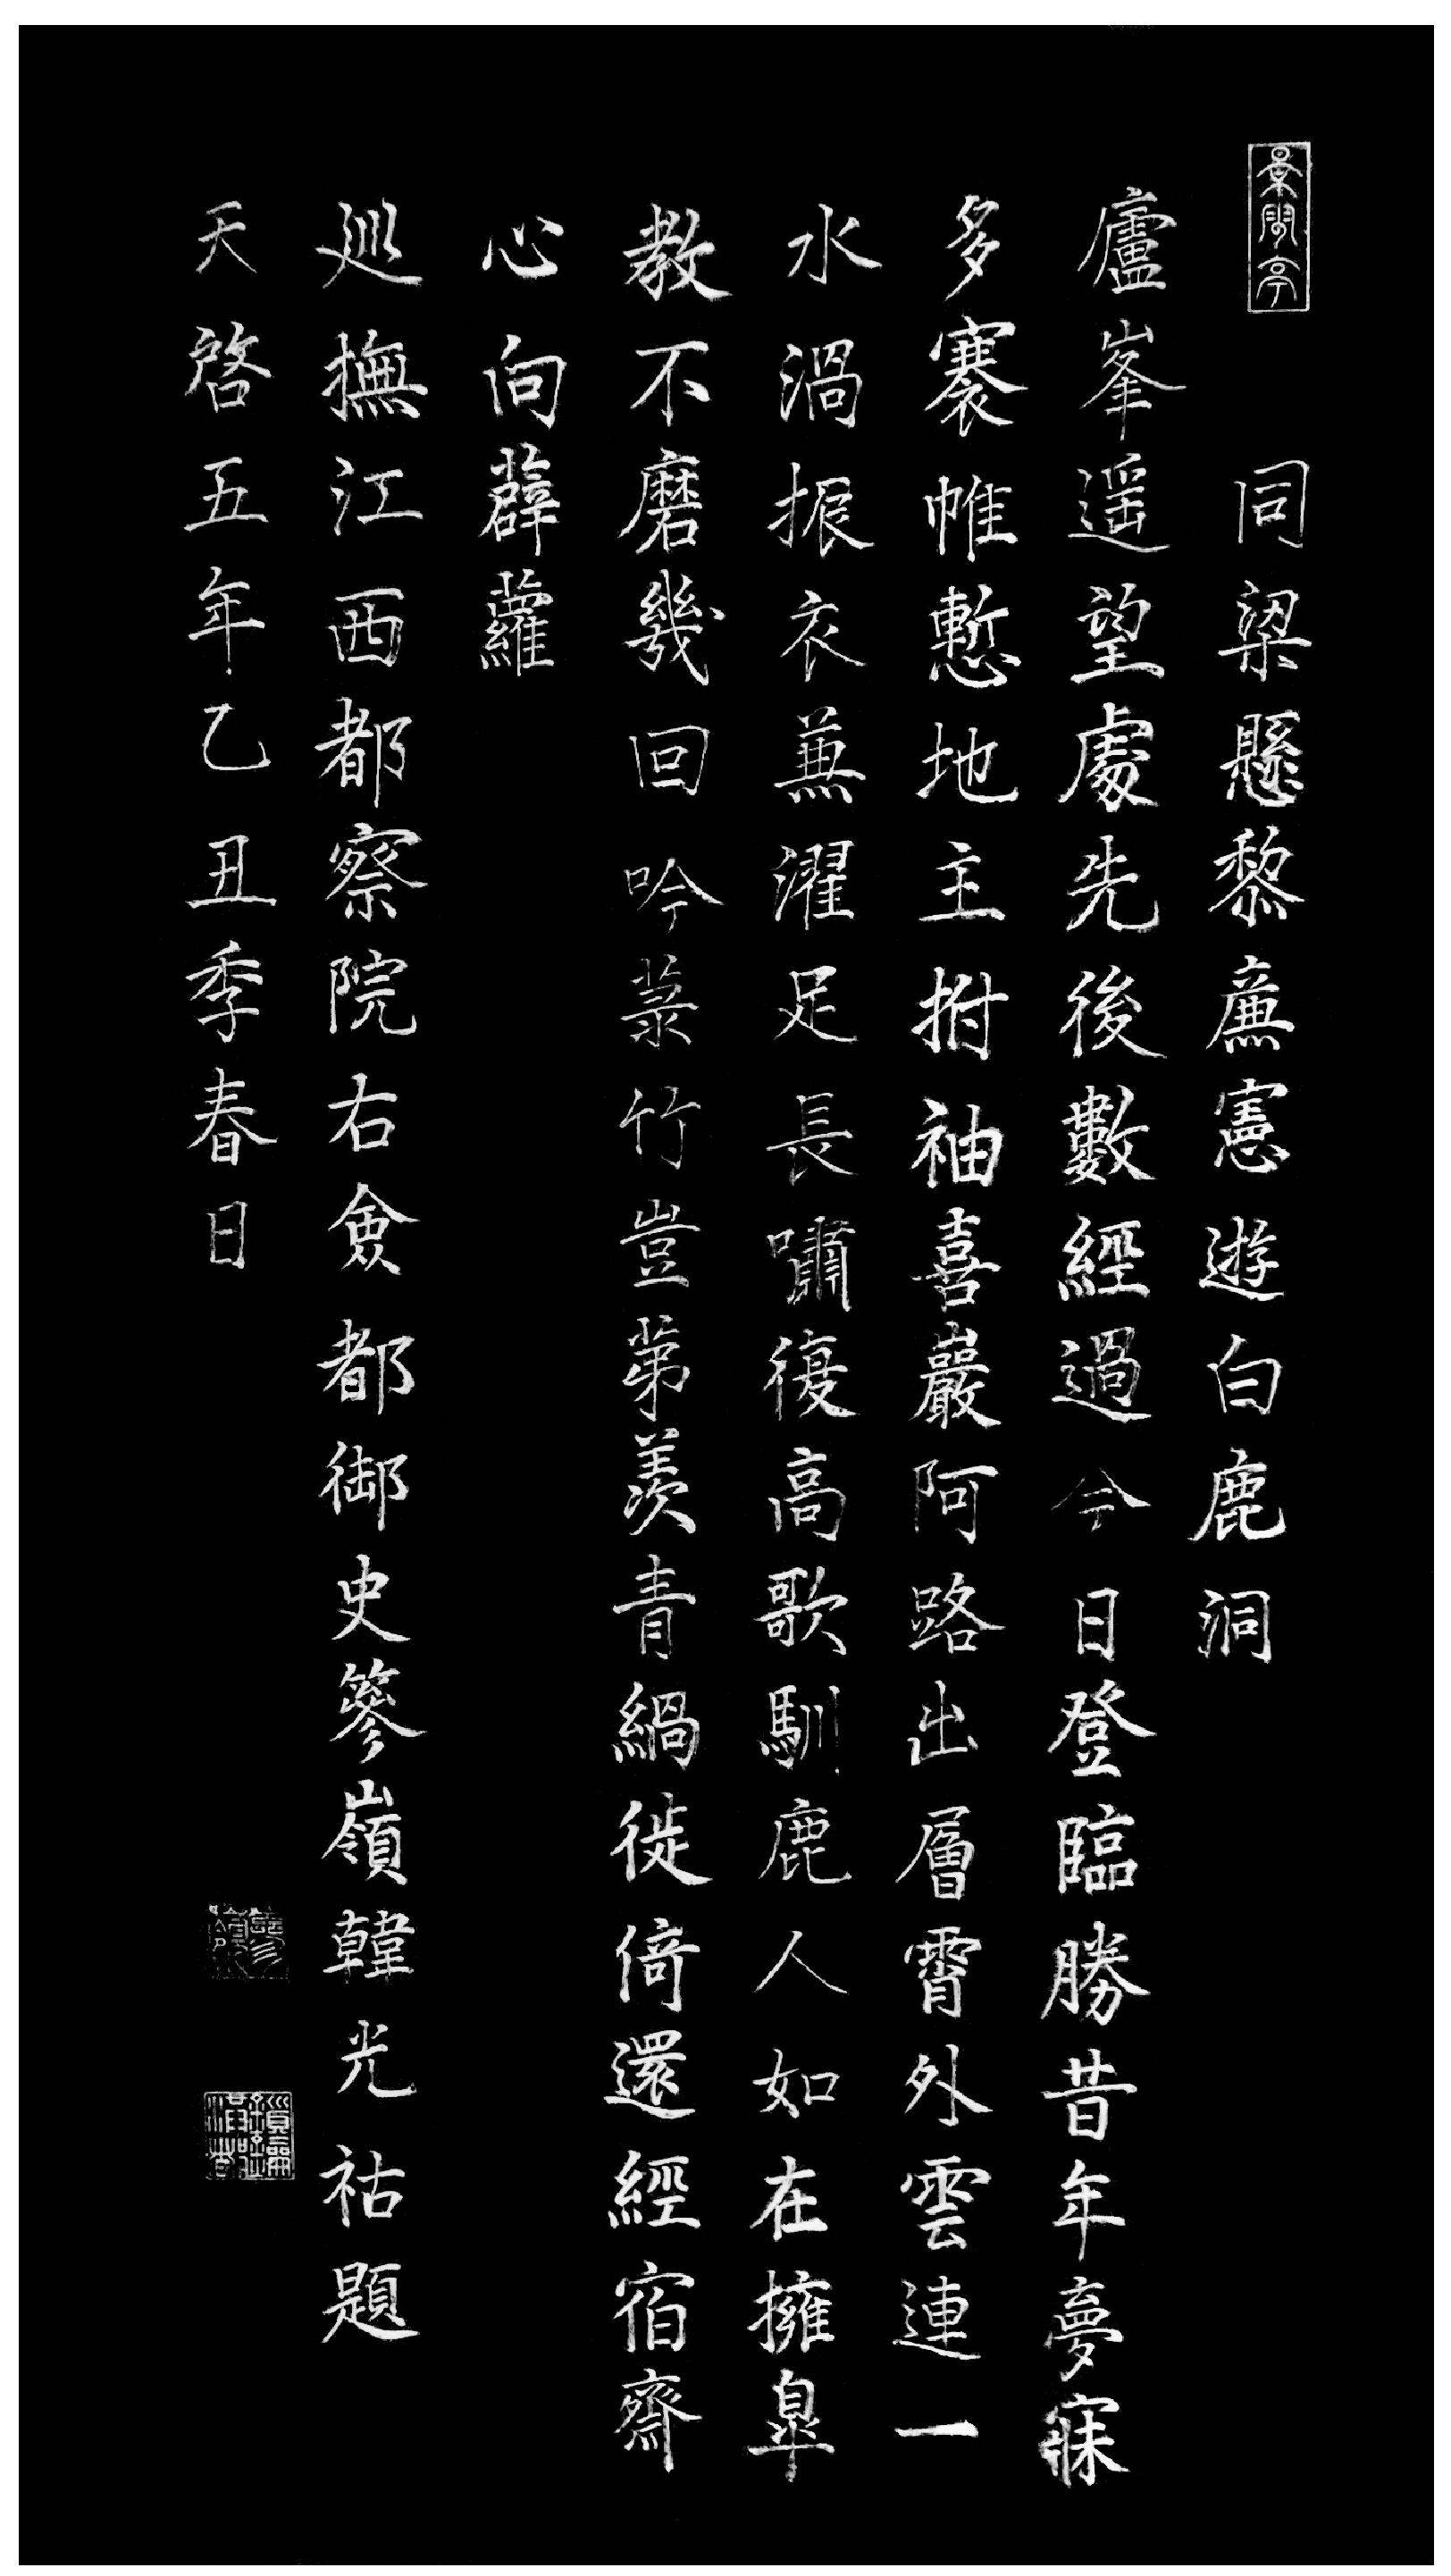 同梁懸黎廉憲遊白鹿洞
廬峯遥望處先後數經過今日登臨勝昔年夢寐
多褰帷慙地主拊袖喜巖阿路出層霄外雲連一
水渦振衣蒹濯足長嘯復高歌馴鹿人如在擁皐
教不磨幾回吟菉竹豈第羨青緺徙倚還經宿齋
心向薜蘿
廵撫江西都察院右僉都御史參嶺韓光祜題
天啓五年乙丑季春日